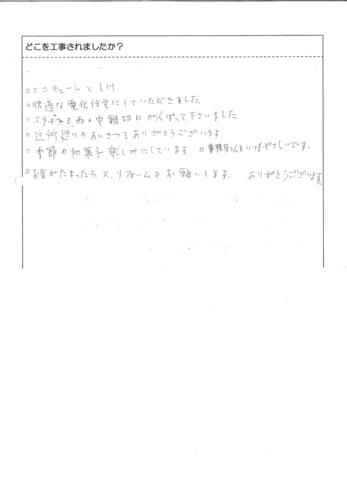 どこを工事されましたか？
○エコキュートとIH
○快適な電化住宅にしていただきました。
○スタッフも、雨の中親切にがんばって下さいました。
○近所廻りのあいさつもありがとうございます
○季節の和菓子楽しみにしています ○事務員さんもいつもやさしいです。
○お金がたまったら、又、リフォームをお願いします。 ありがとうございます